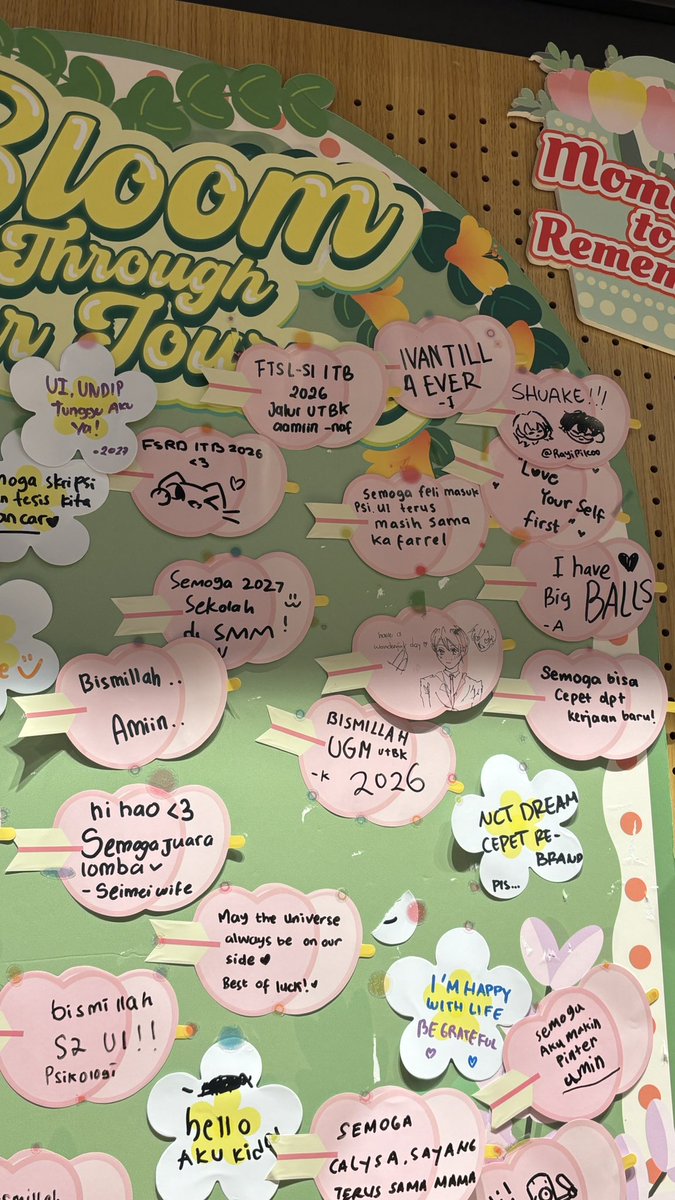 Bloom
Through
Your
Mome
to
Remem
UI, UNDIP
Tunggu Aku
Ya!
-2027
FTSL-SI ITB
2026
Jalur UTBK
aamiin -naf
IVAN TILL
4 EVER
SHUAKE!!!
@RayiPikoo
FSRD ITB 2026
<3
moga skripsi
n tesis kita
ancar
Semoga feli masuk
Psi. UI terus
masih sama
ka farrel
Love
Your Self
first
Semoga 2027
Sekolah
di SMM !
I have
Big BALLS
- A
have a
wonderful day
Bismillah ..
Amiin..
Semoga bisa
Cepet dpt
kerjaan baru!
BISMILLAH
UGM UTBK
-K 2026
NCT DREAM
CEPET RE-
BRAND
PIS...
hi hao <3
Semoga juara
lomba
- Seimei wife
May the universe
always be on our
side
Best of luck!
I'M HAPPY
WITH LIFE
BE GRATEFUL
bismillah
S2 UI!!
Psikologi
semoga
Aku makin
pinter
amin
hello
AKU kidy
SEMOGA
CALYSA, SAYANG
TERUS SAMA MAMA